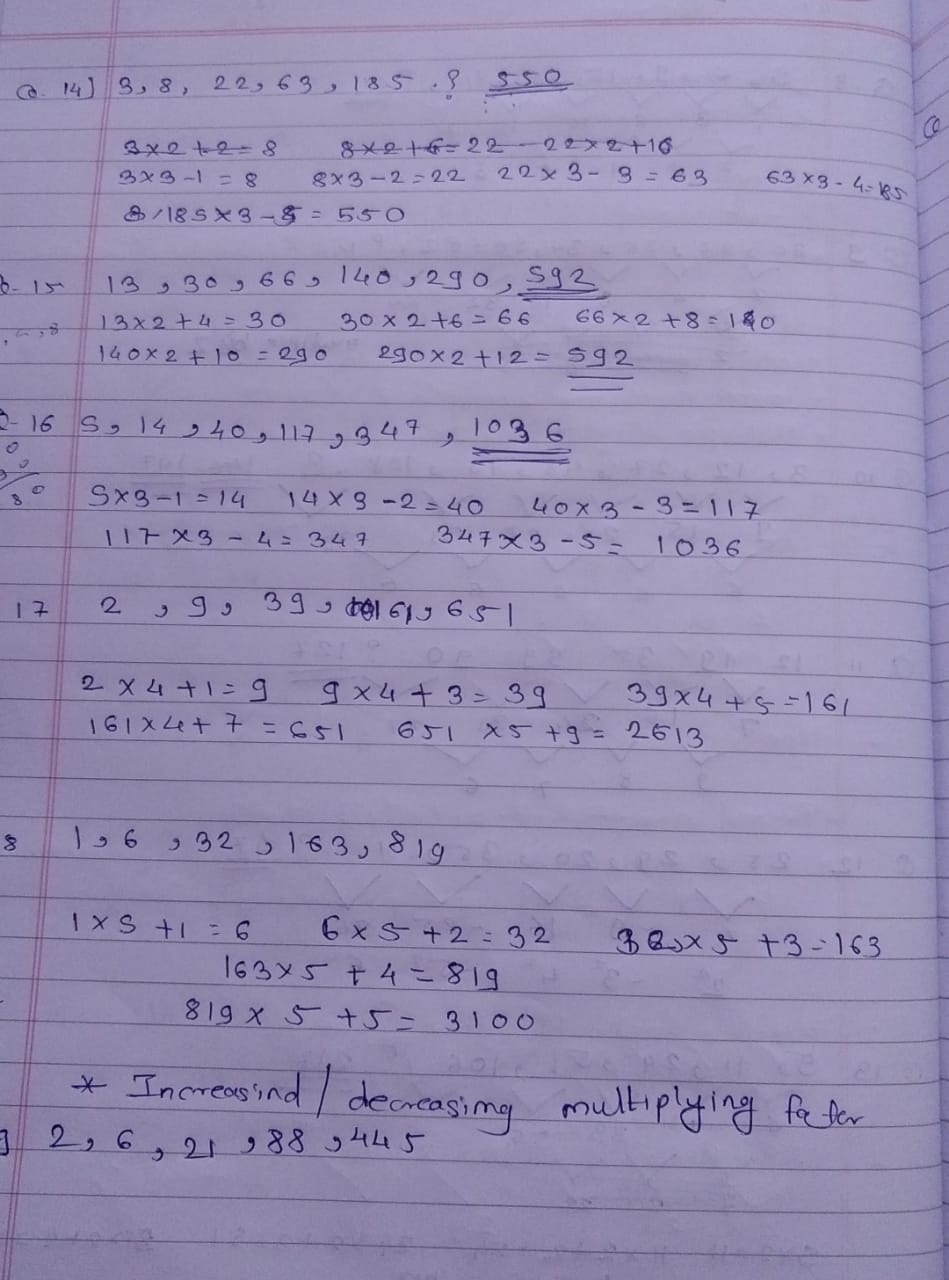 Q. 14] 3, 8, 22, 63, 185 . ? 550
3×2+2=8 8×2+6=22 - 22×2+16
3×3-1=8 8×3-2=22 22×3-3=63 63×3-4=185
185×3-5=550
Q-15 13, 30, 66, 140, 290, 592
13×2+4=30 30×2+6=66 66×2+8=140
140×2+10=290 290×2+12=592
Q-16 5, 14, 40, 117, 347, 1036
5×3-1=14 14×3-2=40 40×3-3=117
117×3-4=347 347×3-5=1036
17 2, 9, 39, 161, 651
2×4+1=9 9×4+3=39 39×4+5=161
161×4+7=651 651×5+9=2613
8 1, 6, 32, 163, 819
1×5+1=6 6×5+2=32 32×5+3=163
163×5+4=819
819×5+5=3100
* Increasind / decreasimg multiplying fator
2, 6, 21, 88, 445